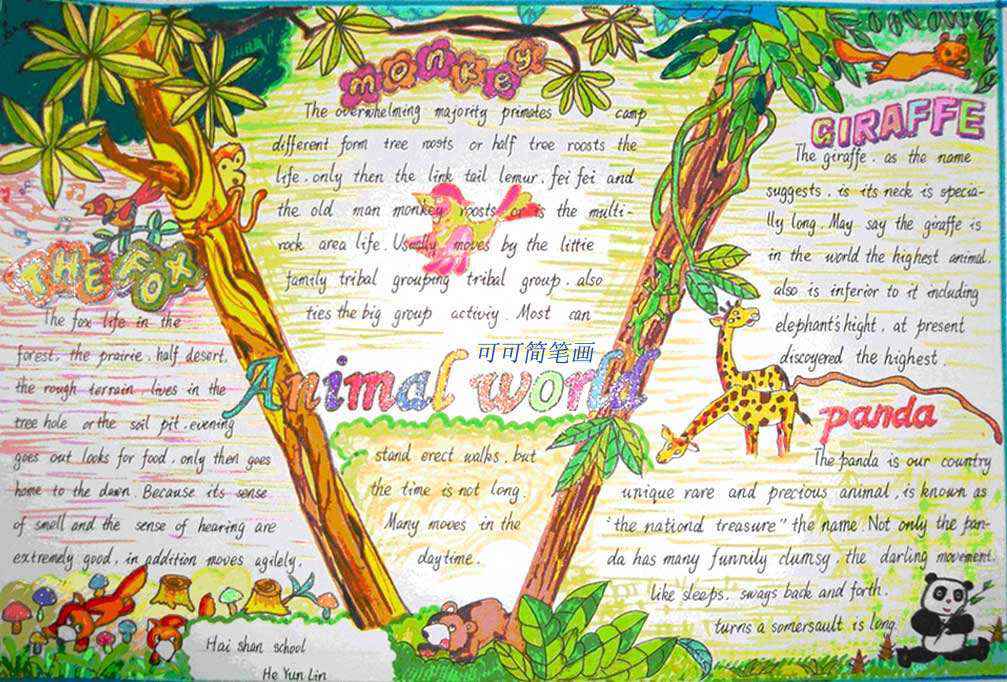 monkey
The overwhelming majority primates camp
different form tree roosts or half tree roosts the
life. only then the link tail lemur. fei fei and
the old man monkey roosts or is the multi-
rock area life. Usually moves by the little
family tribal grouping tribal group. also
ties the big group activiy. Most can
可可简笔画
Animal world
stand erect walks. but
the time is not long.
Many moves in the
daytime.
THE FOX
The fox life in the
forest. the prairie. half desert.
the rough terrain lives in the
tree hole or the soil pit. evening
goes out looks for food. only then goes
home to the dawn. Because its sense
of smell and the sense of hearing are
extremely good. in addition moves agilely.
Hai shan school
He Yun Lin
GIRAFFE
The giraffe. as the name
suggests. is its neck is specia-
lly long. May say the giraffe is
in the world the highest animal.
also is inferior to it including
elephant's hight. at present
discoyered the highest.
panda
The panda is our country
unique rare and precious animal. is known as
"the nationd treasure" the name. Not only the pan-
da has many funnily clumsy. the darling movement.
like sleeps. sways back and forth.
turns a somersault is long.